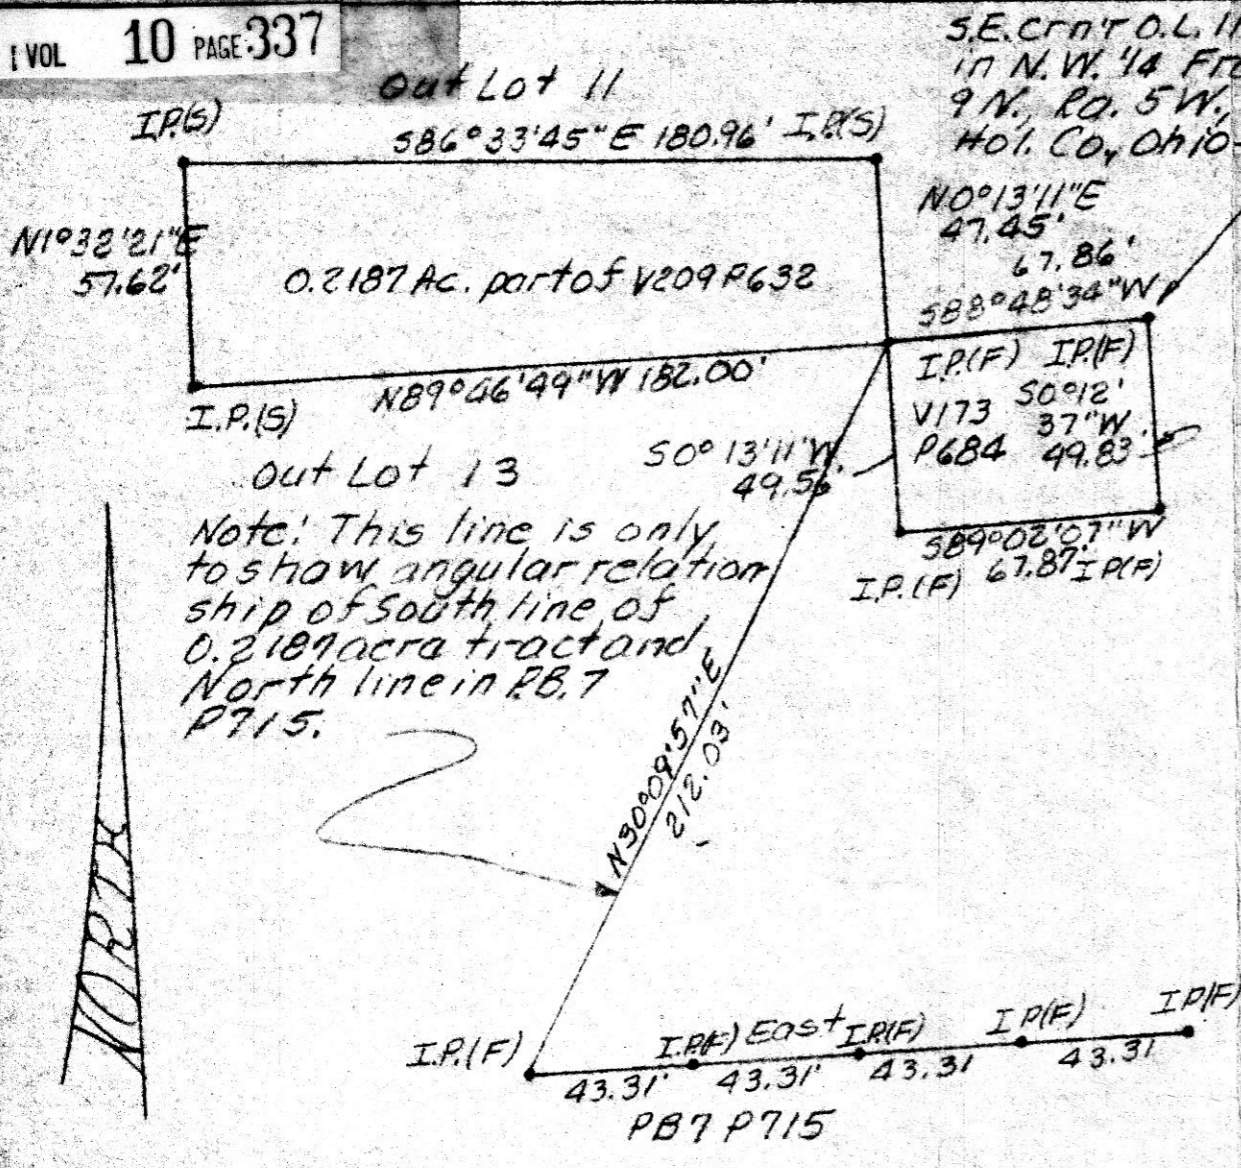 VOL 10 PAGE 337
Out Lot 11
S.E. Crn'r O.L. 11
in N.W. 1/4 Fr
9 N., Ra. 5 W.,
Hol. Co., Ohio
I.P.(S)
S86°33'45"E 180.96' I.P.(S)
N1°32'21"E
57.62'
0.2187 Ac. part of V209 P632
N0°13'11"E
47.45'
67.86'
S88°48'34"W
I.P.(F) I.P.(F)
I.P.(S)
N89°46'49"W 182.00'
V173
P684
S0°12'
37"W
49.83'
Out Lot 13
S0°13'11"W
49.56'
S89°02'07"W
67.87'
I.P.(F) I.P.(F)
Note! This line is only
to show angular relation
ship of South line of
0.2187 acra tract and
North line in P.B. 7
P715.
N30°09'57"E
212.03'
NORTH
I.P.(F) I.P.(F) East I.P.(F) I.P(F) I.P(F)
43.31' 43.31' 43.31 43.31
PB7 P715